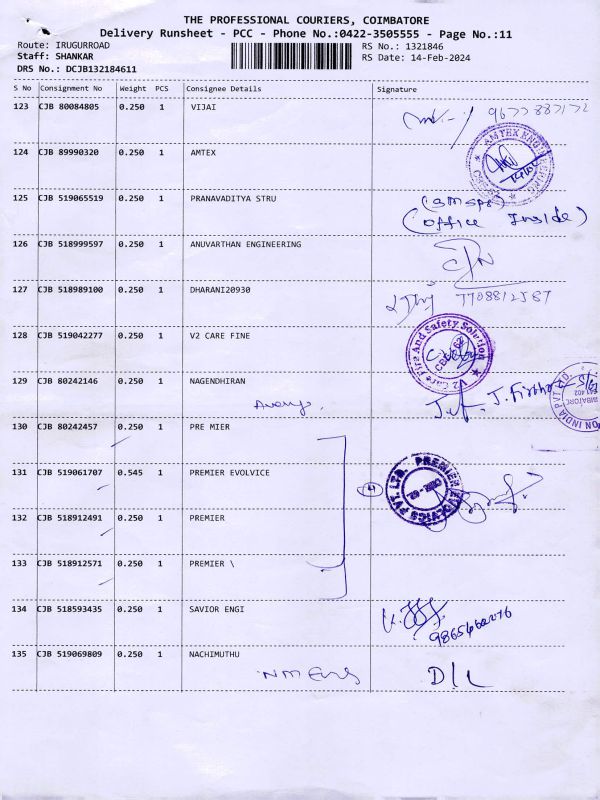 THE PROFESSIONAL COURIERS, COIMBATORE
Delivery Runsheet - PCC - Phone No.:0422-3505555 - Page No.:11
Route: IRUGURROAD
RS No.: 1321846
Staff: SHANKAR
RS Date: 14-Feb-2024
DRS No.: DCJB132184611
S No Consignment No Weight PCS Consignee Details Signature
123 CJB 80084805 0.250 1 VIJAI
124 CJB 89990320 0.250 1 AMTEX
AMTEX ENGINEERING
125 CJB 519065519 0.250 1 PRANAVADITYA STRU
(Office Inside)
126 CJB 518999597 0.250 1 ANUVARTHAN ENGINEERING
127 CJB 518989100 0.250 1 DHARANI20930 7708812587
128 CJB 519042277 0.250 1 V2 CARE FINE
V2 Care Fire And Safety Solution
129 CJB 80242146 0.250 1 NAGENDHIRAN
130 CJB 80242457 0.250 1 PRE MIER
131 CJB 519061707 0.545 1 PREMIER EVOLVICE
(4)
PREMIER EVOLVICS PVT. LTD.
132 CJB 518912491 0.250 1 PREMIER
133 CJB 518912571 0.250 1 PREMIER \
134 CJB 518593435 0.250 1 SAVIOR ENGI
135 CJB 519069809 0.250 1 NACHIMUTHU
D/L